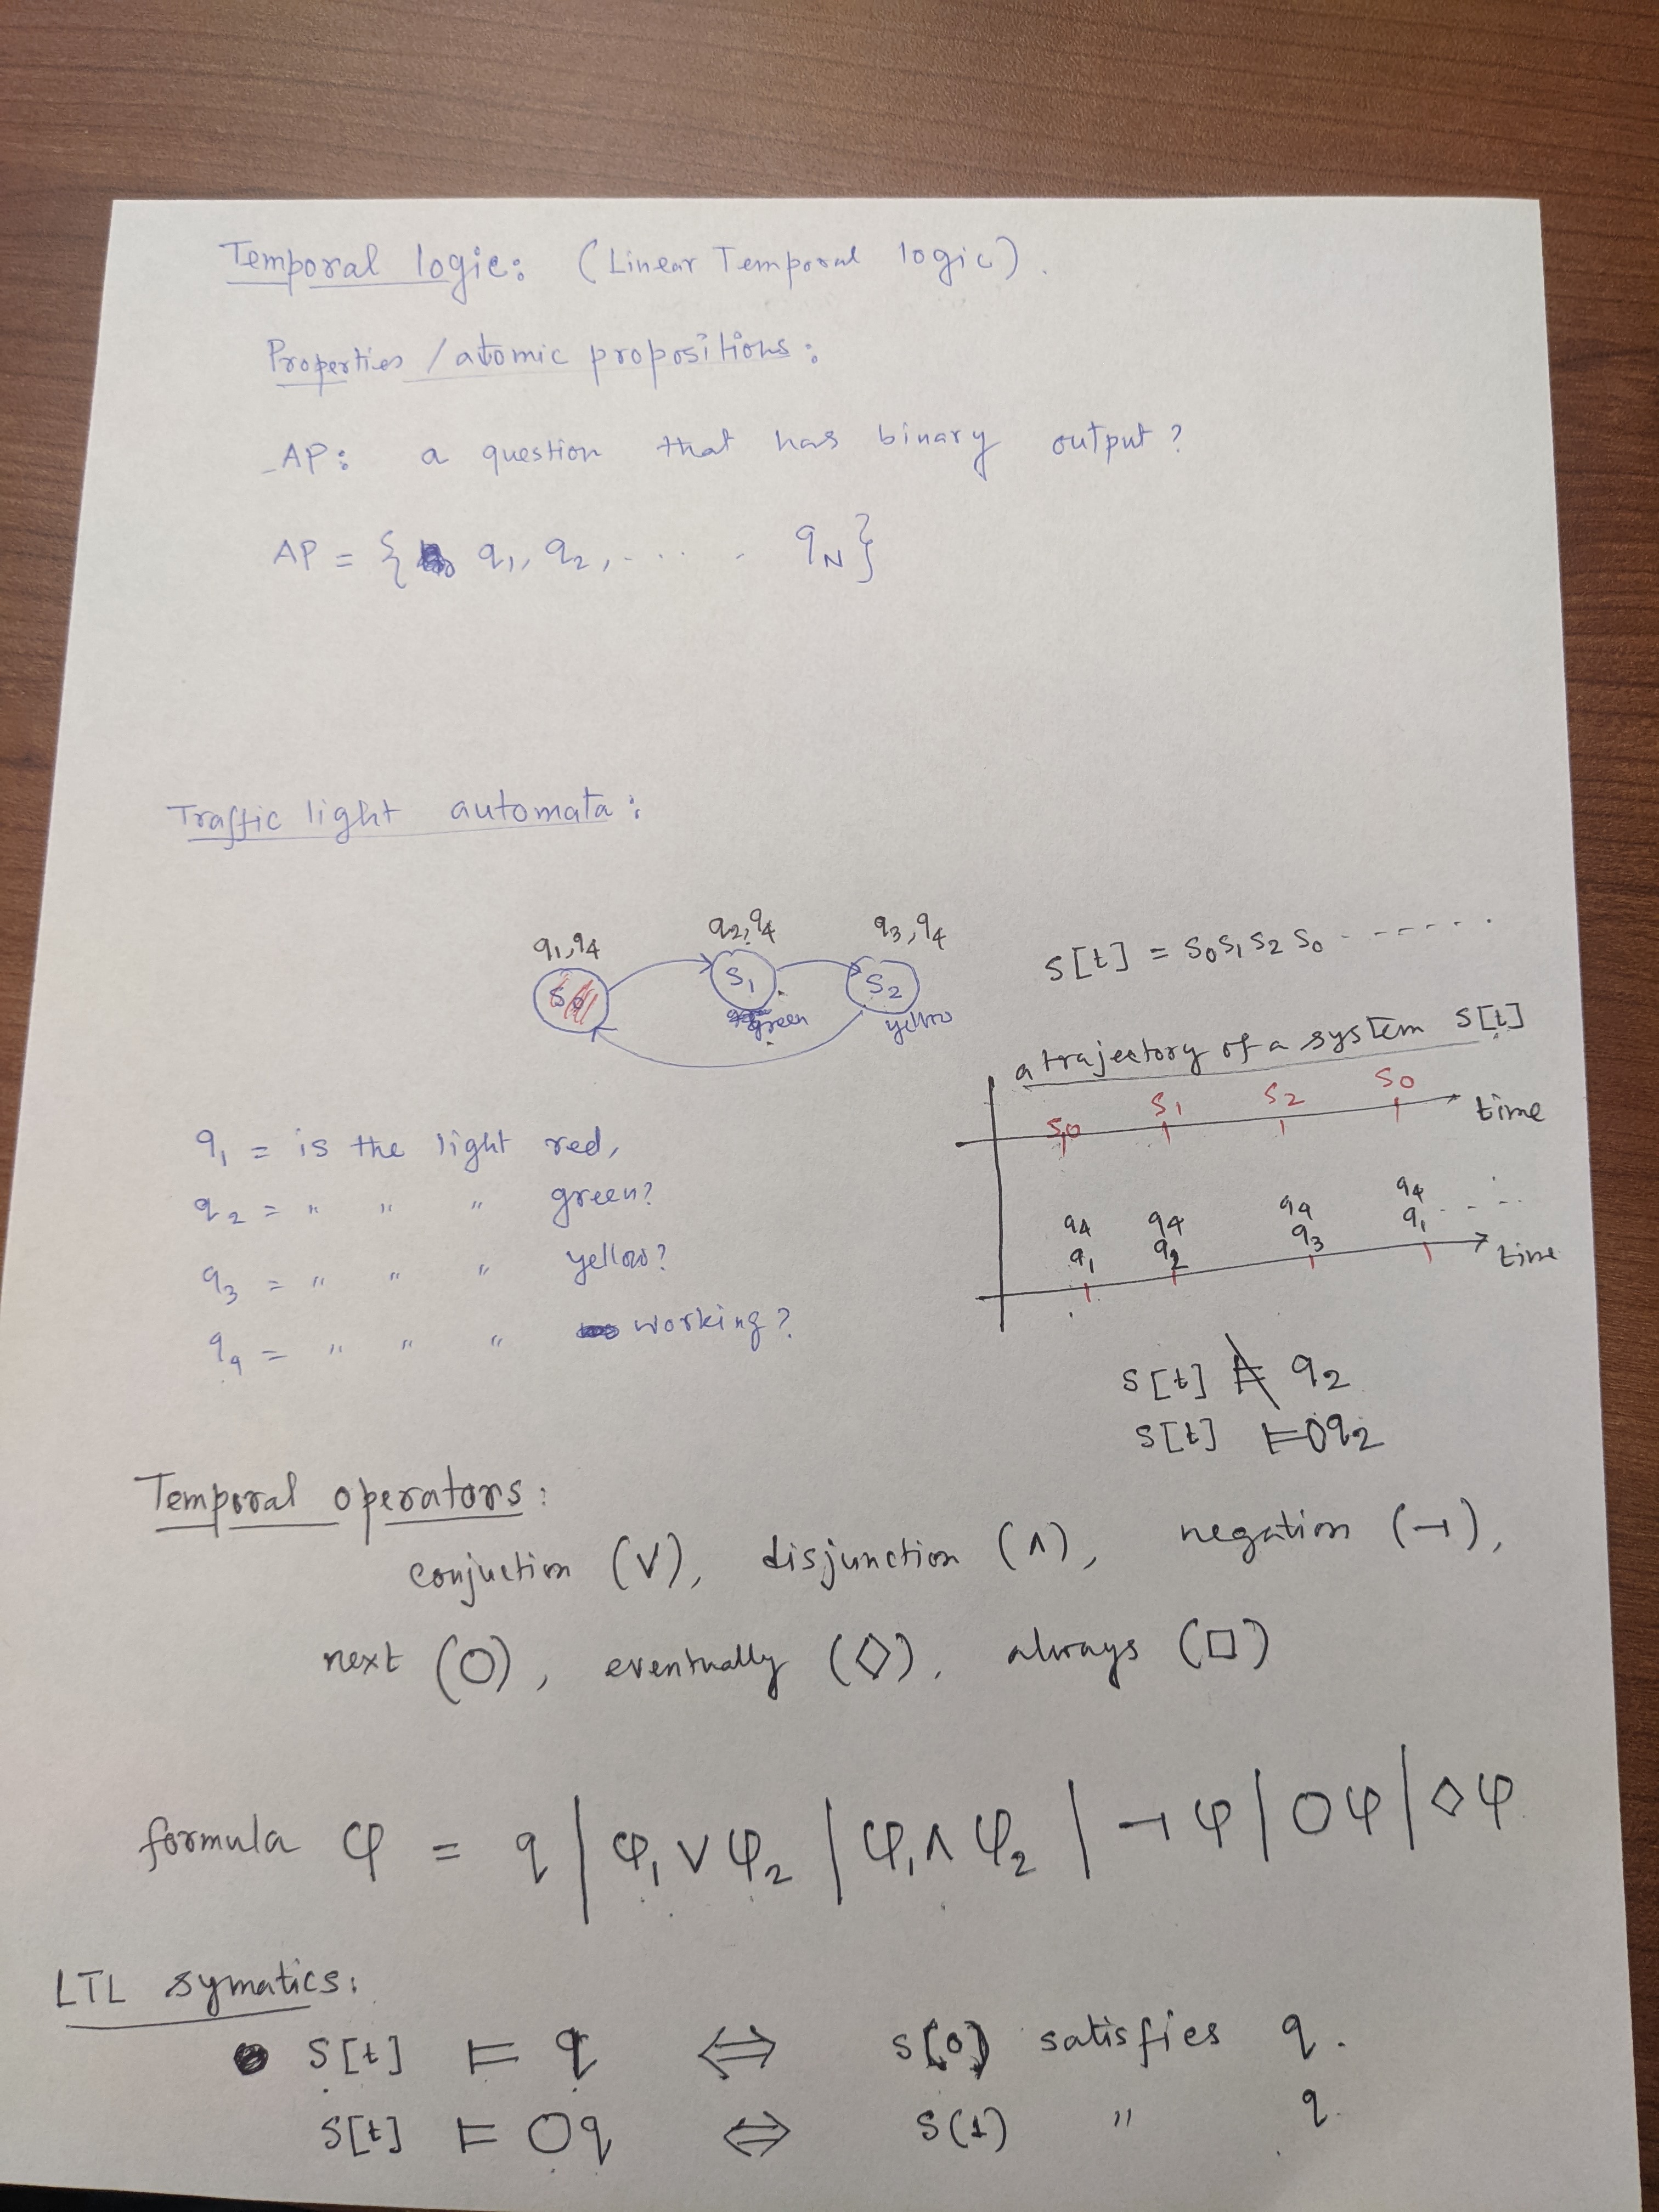 Temporal logic: (Linear Temporal logic).
Properties/atomic propositions:
AP: a question that has binary output?
AP = { q₁, q₂, ..... q_N}
Traffic light automata:
q₁,q₄ q₂,q₄ q₃,q₄
S₀ S₁ S₂
green yellow
S[t] = S₀S₁S₂S₀ ------
a trajectory of a system S[t]
S₀ S₁ S₂ S₀ time
q₄ q₄ q₄ q₄
q₁ q₂ q₃ q₁ ---- time
q₁ = is the light red,
q₂ = " " " green?
q₃ = " " " yellow?
q₄ = " " " working?
S[t] ⊭ q₂
S[t] ⊨ ○q₂
Temporal operators:
conjuction (∨), disjunction (∧), negation (¬),
next (○), eventually (◇), always (□)
formula φ = q | φ₁ ∨ φ₂ | φ₁ ∧ φ₂ | ¬φ | ○φ | ◇φ
LTL symatics:
S[t] ⊨ q ⇔ S(0) satisfies q.
S[t] ⊨ ○q ⇔ S(1) " q.